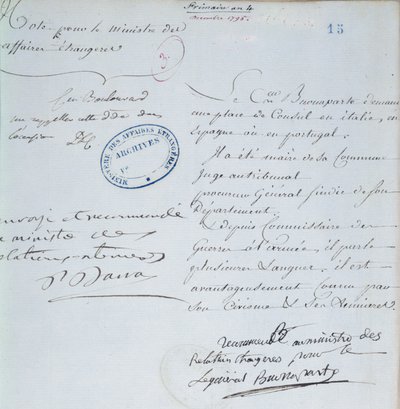 Frimaire an 4
décembre 1795.
15
Note pour le ministre des
affaires étrangeres
3.
Le Cen Buonaparte demande
une place de Consul en italie, en
Espagne ou en portugal.
Il a été maire de sa Commune
Juge au tribunal
procureur Général sindic de son
Département.
depuis Commissaire des
Guerre à l'armée, il parle
plusieurs Langues, il est
avantageusement Connu par
son Civisme & Ses Lumieres.
me rappeller cette dde dans
l'occasion
MINISTÈRE DES AFFAIRES ETRANGÈRES
ARCHIVES
envoyé et recommandé
ministre des
relations exterieures
P. Barras
recommandé ministre des
Relation etrangeres pour le
General Buonaparte